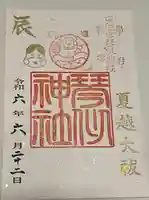 夏越大祓
琴似神社
辰
令和六年六月二十二日